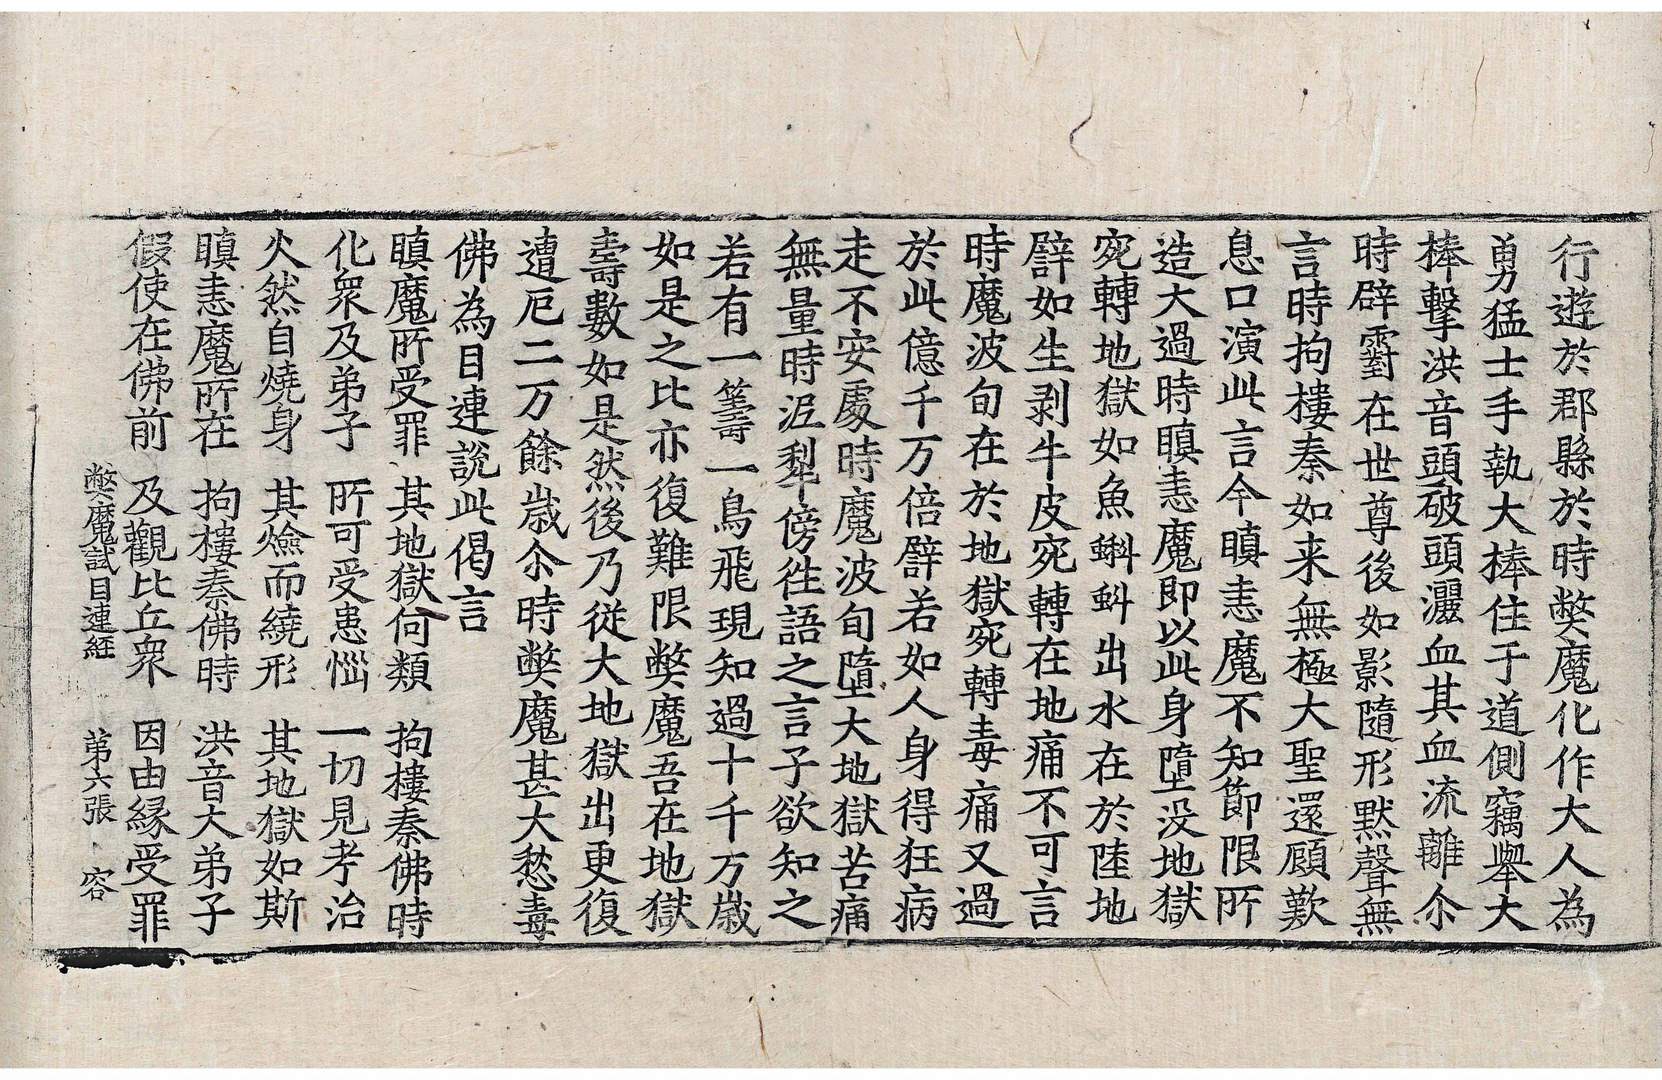 行遊於郡縣於時弊魔化作大人為
勇猛士手執大棒住于道側竊舉大
棒擊洪音頭破頭灑血其血流離尒
時辟霣在世尊後如影隨形默聲無
言時拘樓秦如来無極大聖還顧歎
息口演此言今瞋恚魔不知節限所
造大過時瞋恚魔即以此身墮没地獄
宛轉地獄如魚蝌蚪出水在於陸地
譬如生剥牛皮宛轉在地痛不可言
時魔波旬在於地獄宛轉毒痛又過
於此億千万倍譬若如人身得狂病
走不安處時魔波旬墮大地獄苦痛
無量時泥犁傍徃語之言子欲知之
若有一籌一鳥飛現知過十千万歲
如是之比亦復難限弊魔吾在地獄
壽數如是然後乃従大地獄出更復
遭厄二万餘歲尒時弊魔甚大愁毒
佛為目連說此偈言
瞋魔所受罪 其地獄何類 拘樓秦佛時
化衆及弟子 所可受患惱 一切見考治
火然自燒身 其燄而繞形 其地獄如斯
瞋恚魔所在 拘樓秦佛時 洪音大弟子
假使在佛前 及觀比丘衆 因由縁受罪
弊魔試目連經 第六張 容